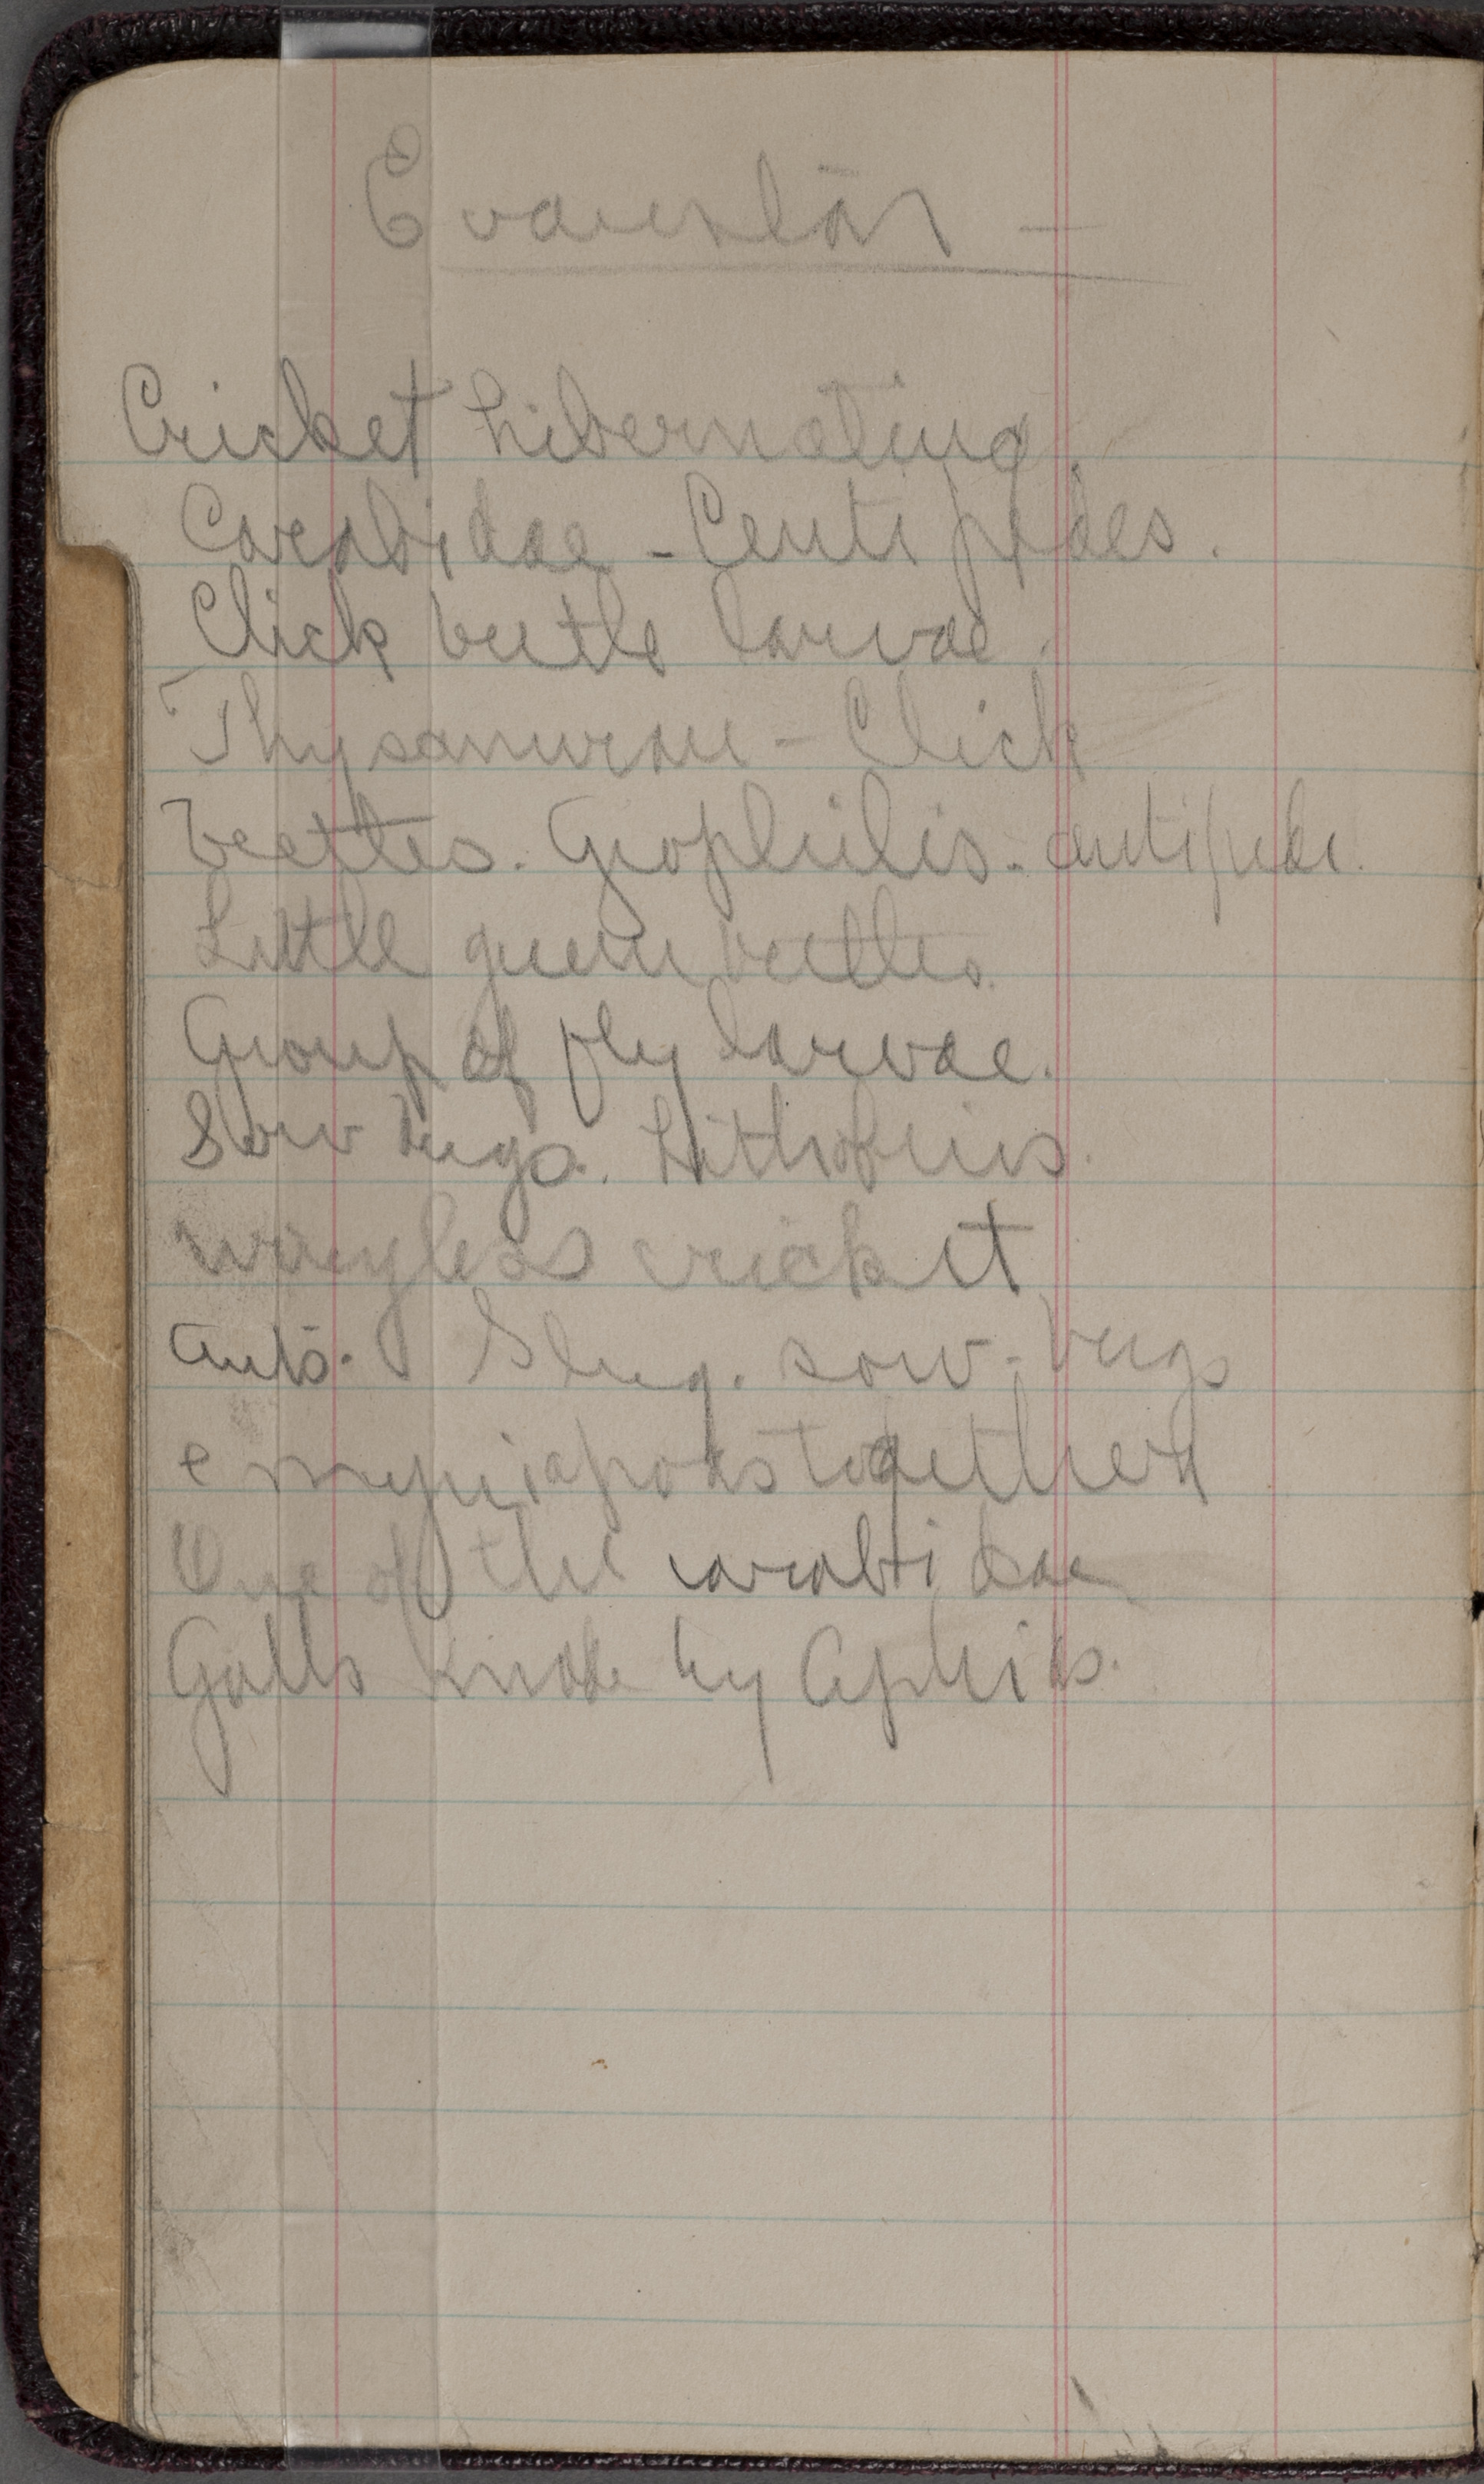 Evanston -
Cricket hibernating.
Carabidae - Centipedes.
Click beetle larvae.
Thysanurae - Click
beetles. Geophilis. centipede.
Little green beetles.
Group of fly larvae.
Sow bugs. Lithobius.
wingless cricket
Ants. Slug. sow-bugs
e myriapods together
One of the carabidae
Galls made by Aphids.